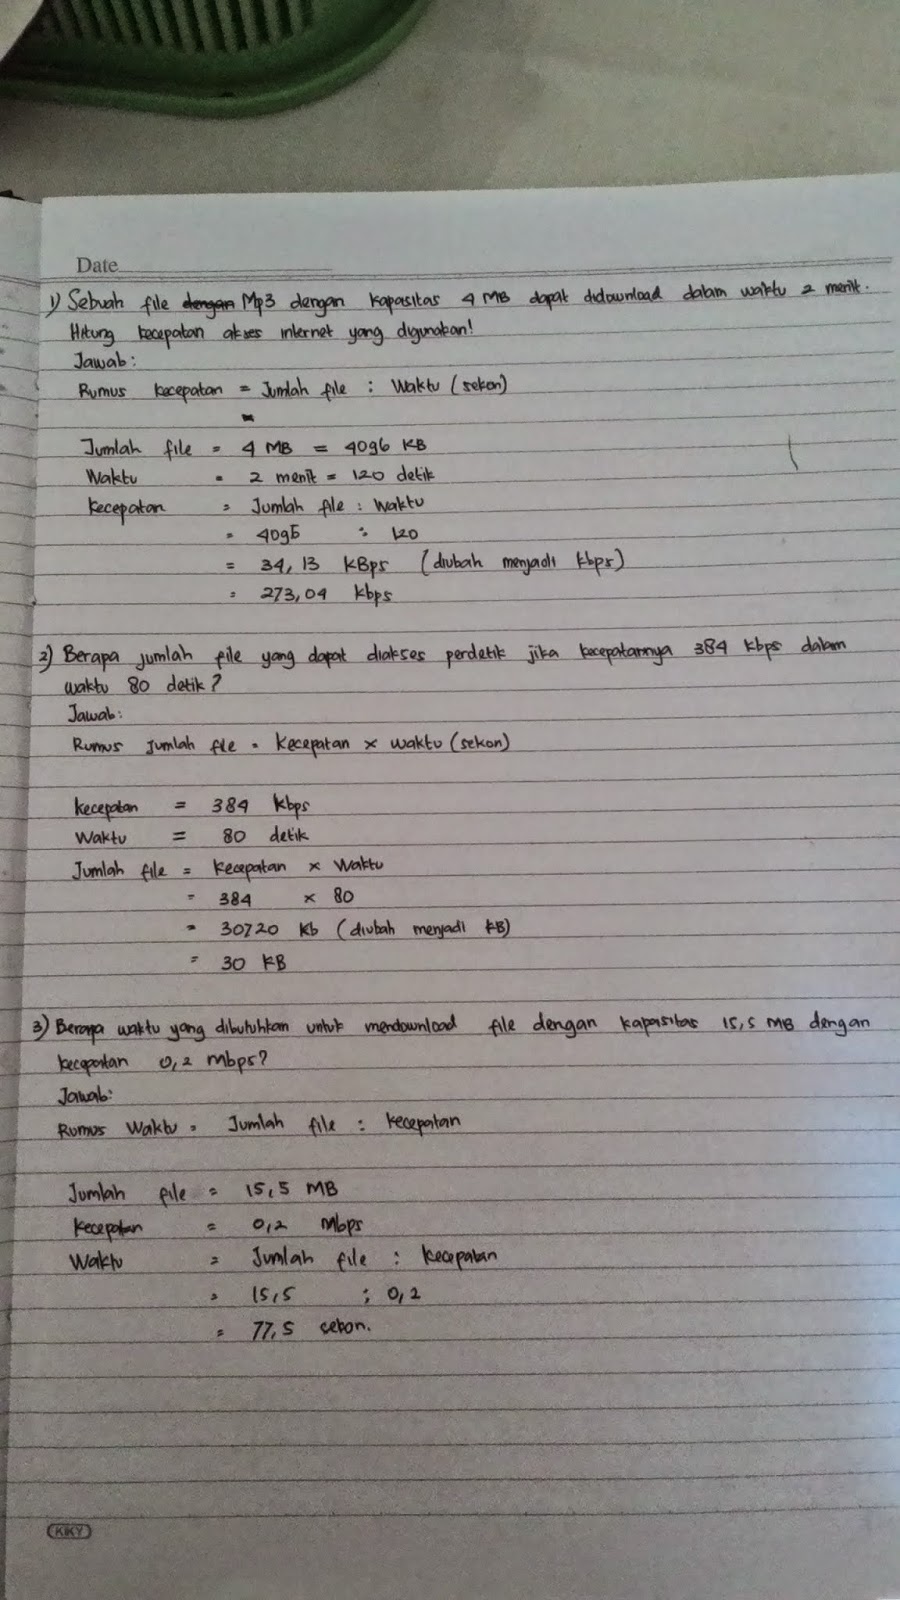 Date
1) Sebuah file dengan Mp3 dengan kapasitas 4 MB dapat didownload dalam waktu 2 menit.
Hitung kecepatan akses internet yang digunakan!
Jawab:
Rumus kecepatan = Jumlah file : Waktu (sekon)
=
Jumlah file = 4 MB = 4096 KB
Waktu = 2 menit = 120 detik
Kecepatan = Jumlah file : Waktu
= 4096 : 120
= 34,13 KBps (diubah menjadi kbps)
= 273,04 kbps
2) Berapa jumlah file yang dapat diakses perdetik jika kecepatannya 384 kbps dalam
waktu 80 detik?
Jawab:
Rumus Jumlah file = Kecepatan x waktu (sekon)
kecepatan = 384 kbps
Waktu = 80 detik
Jumlah file = Kecepatan x Waktu
= 384 x 80
= 30720 Kb (diubah menjadi KB)
= 30 KB
3) Berapa waktu yang dibutuhkan untuk mendownload file dengan kapasitas 15,5 MB dengan
kecepatan 0,2 Mbps?
Jawab:
Rumus Waktu = Jumlah file : Kecepatan
Jumlah file = 15,5 MB
Kecepatan = 0,2 Mbps
Waktu = Jumlah file : kecepatan
= 15,5 : 0,2
= 77,5 sekon.
KIKY